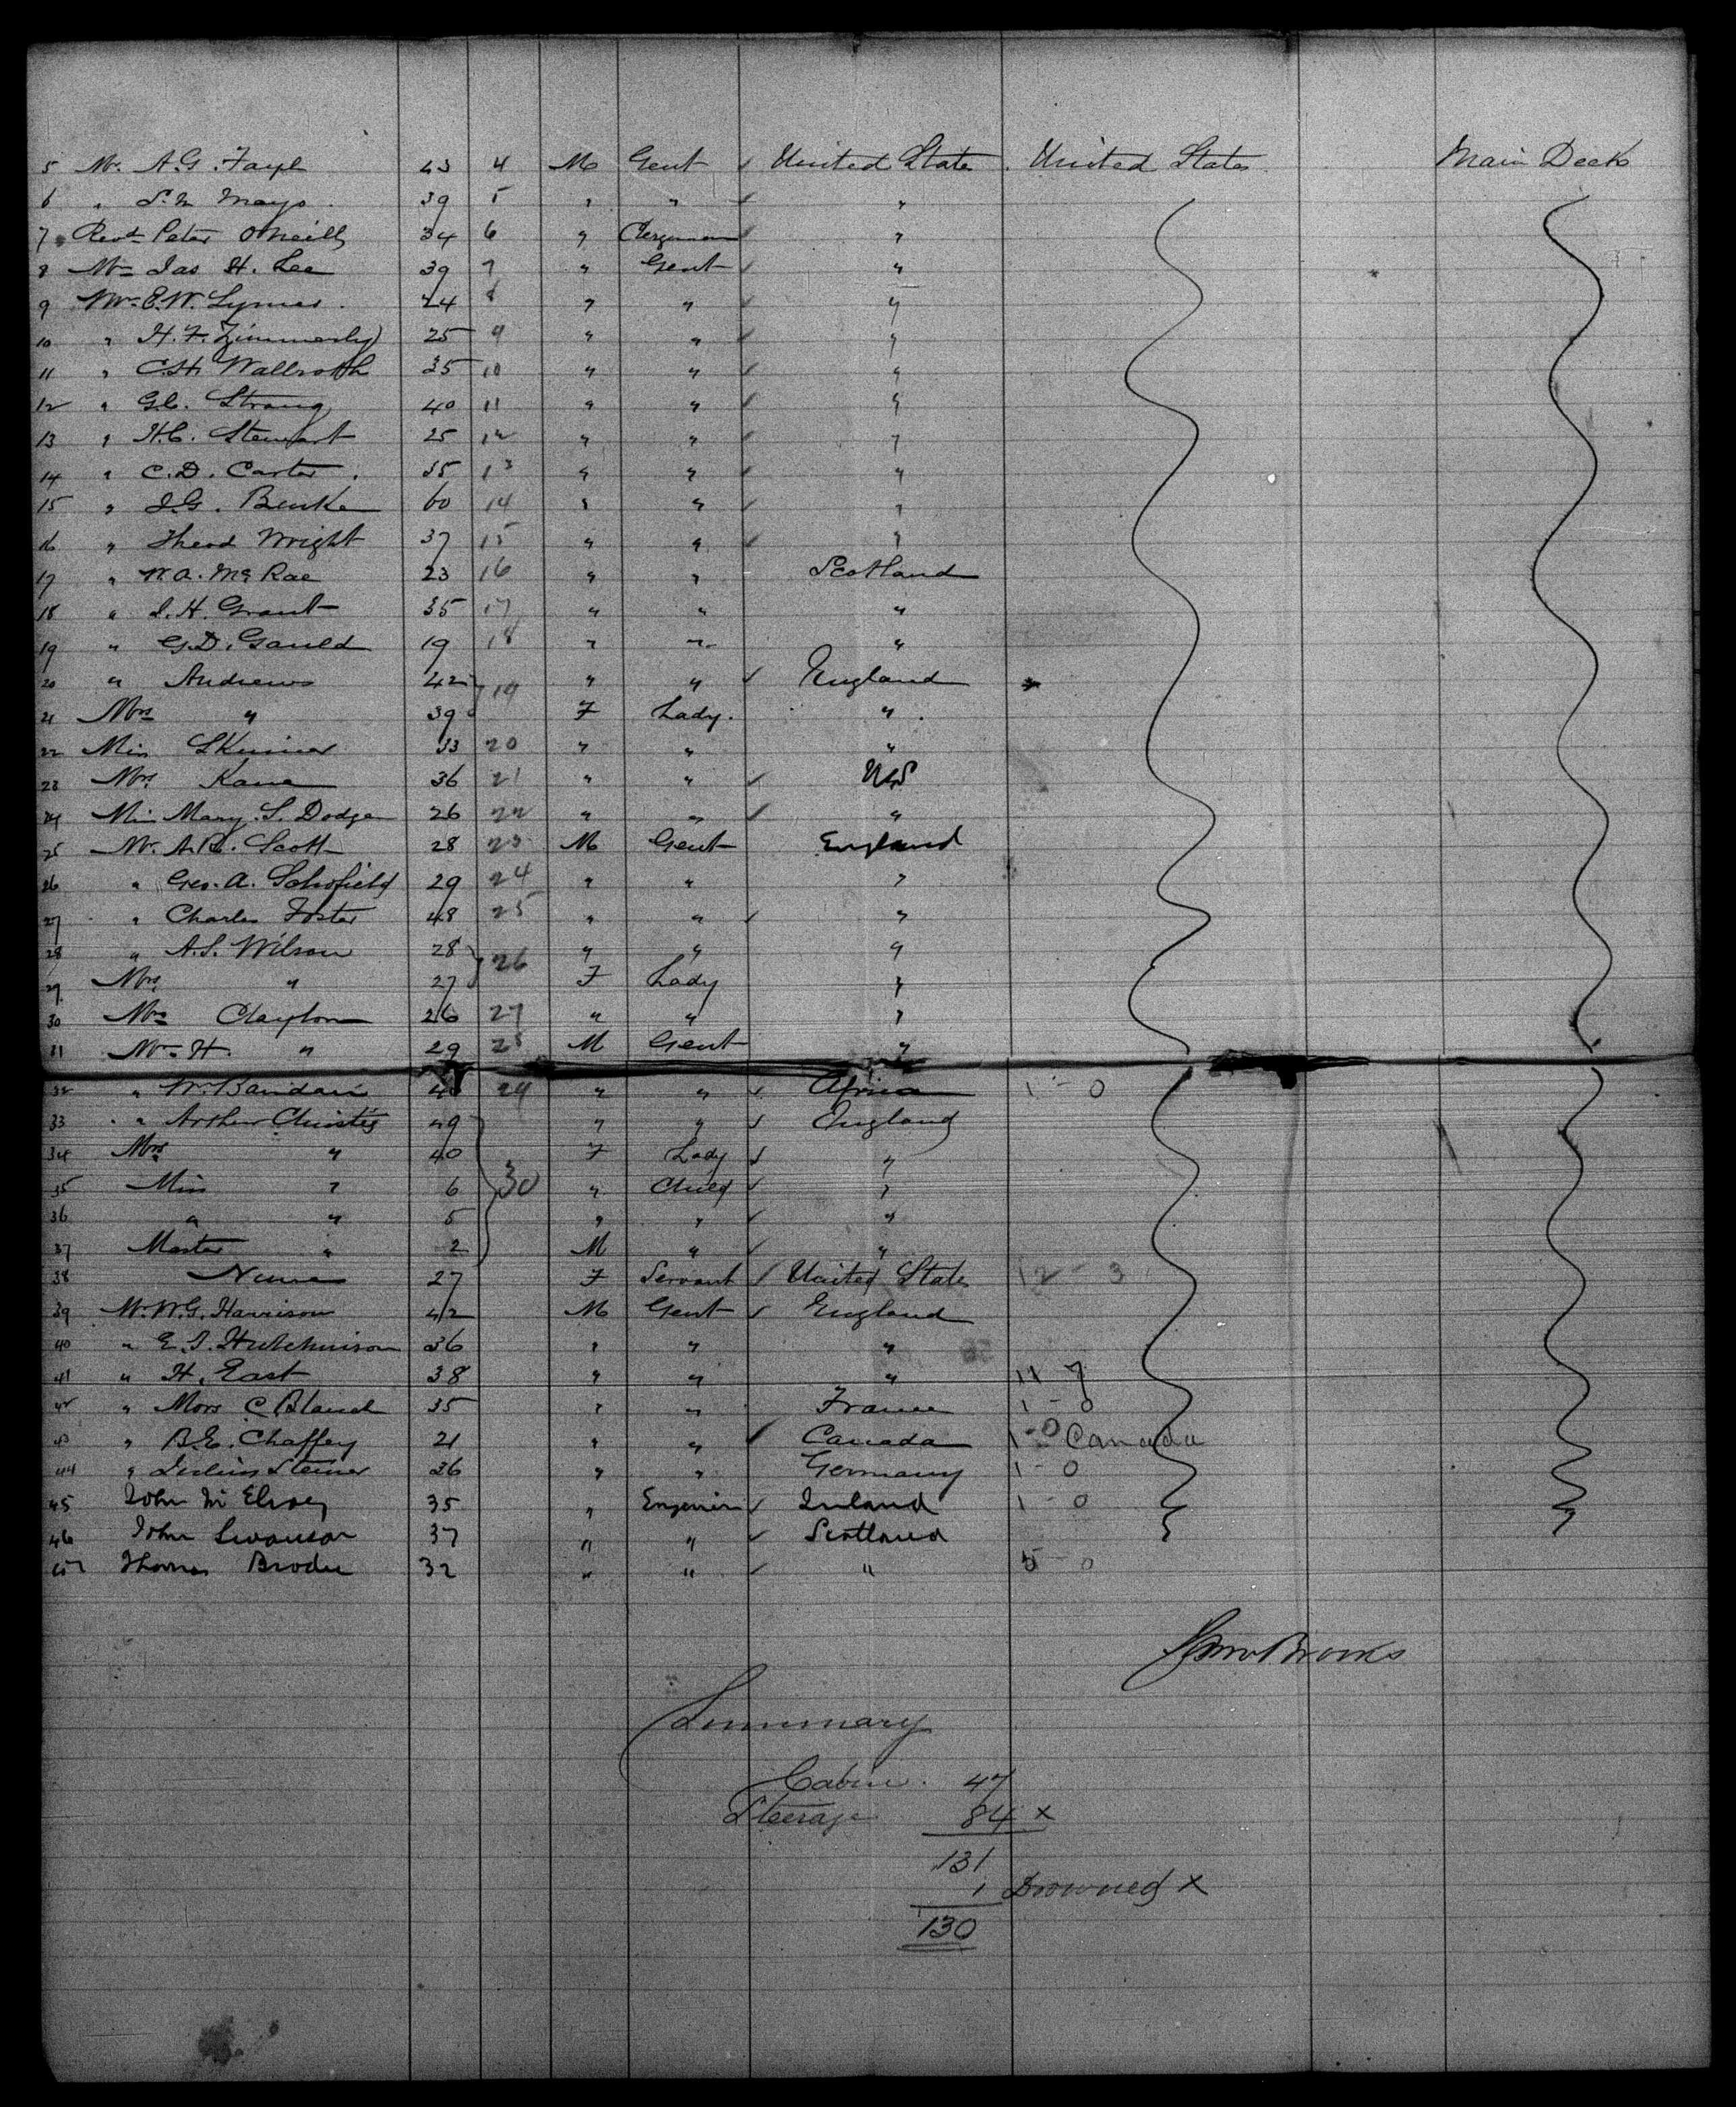 5 Mr. A.G. 43 4 M Gent ✓ United States United States Main Deck
6 " S. M Mayo 39 5 " " ✓ "
7 Revd Peter O'Neill 34 6 " Clergyman ✓ "
8 Mr Jas H. Lee 39 7 " Gent ✓ "
9 Mr E.W. 24 8 " " ✓ "
10 " H.F. Zimmerly 25 9 " " ✓ "
11 " C.H. Wallroth 35 10 " " ✓ "
12 " G.C. Strang 40 11 " " ✓ "
13 " H.C. Stewart 25 12 " " ✓ "
14 " C.D. Carter 35 13 " " ✓ "
15 " J.G. 60 14 " " ✓ "
16 " Theod Wright 37 15 " " ✓ "
17 " W.A. McRae 23 16 " " Scotland
18 " J.H. Grant 35 17 " " "
19 " G.D. Gauld 19 18 " " "
20 " Andrews 42 19 " " ✓ England
21 Mrs " 39 F Lady. "
22 Miss Skinner 33 20 " " "
23 Mrs Kane 36 21 " " ✓ U.S
24 Miss Mary. S. Dodge 26 22 " " ✓ "
25 Mr. A.R. Scott 28 23 M Gent England
26 " Geo. A. Schofield 29 24 " " "
27 " Charles Foster 48 25 " " ✓ "
28 " A.S. Wilson 28 26 " " "
29 Mrs " 27 F Lady "
30 Mrs Clayton 26 27 " " "
31 Mr H. " 29 28 M Gent "
32 " W. 40 29 " " ✓ Africa 1 - 0
33 " Arthur Christie 49 " " ✓ England
34 Mrs " 40 F Lady ✓ "
35 Miss " 6 30 " Child ✓ "
36 " " 5 " " ✓ "
37 Master " 2 M " ✓ "
38 Nurse 27 F Servant ✓ United States 12 - 3
39 Mr. W.G. Harrison 42 M Gent ✓ England
40 " E.J. Hutchinson 36 " " "
41 " H. East 38 " " " 11 7
42 " Mons C. Blanch 35 " " France 1 - 0
43 " B.E. Chaffey 21 " " ✓ Canada 1 - 0 Canada
44 " Julius Steiner 36 " " Germany 1 - 0
45 John McElroy 35 " Engineer ✓ Ireland 1 - 0
46 John Swanson 37 " " ✓ Scotland
47 Thomas Brodie 32 " " ✓ " 5 - 0
Brooks
Summary
Cabin. 47
Steerage 84 x
131
1 Drowned x
130